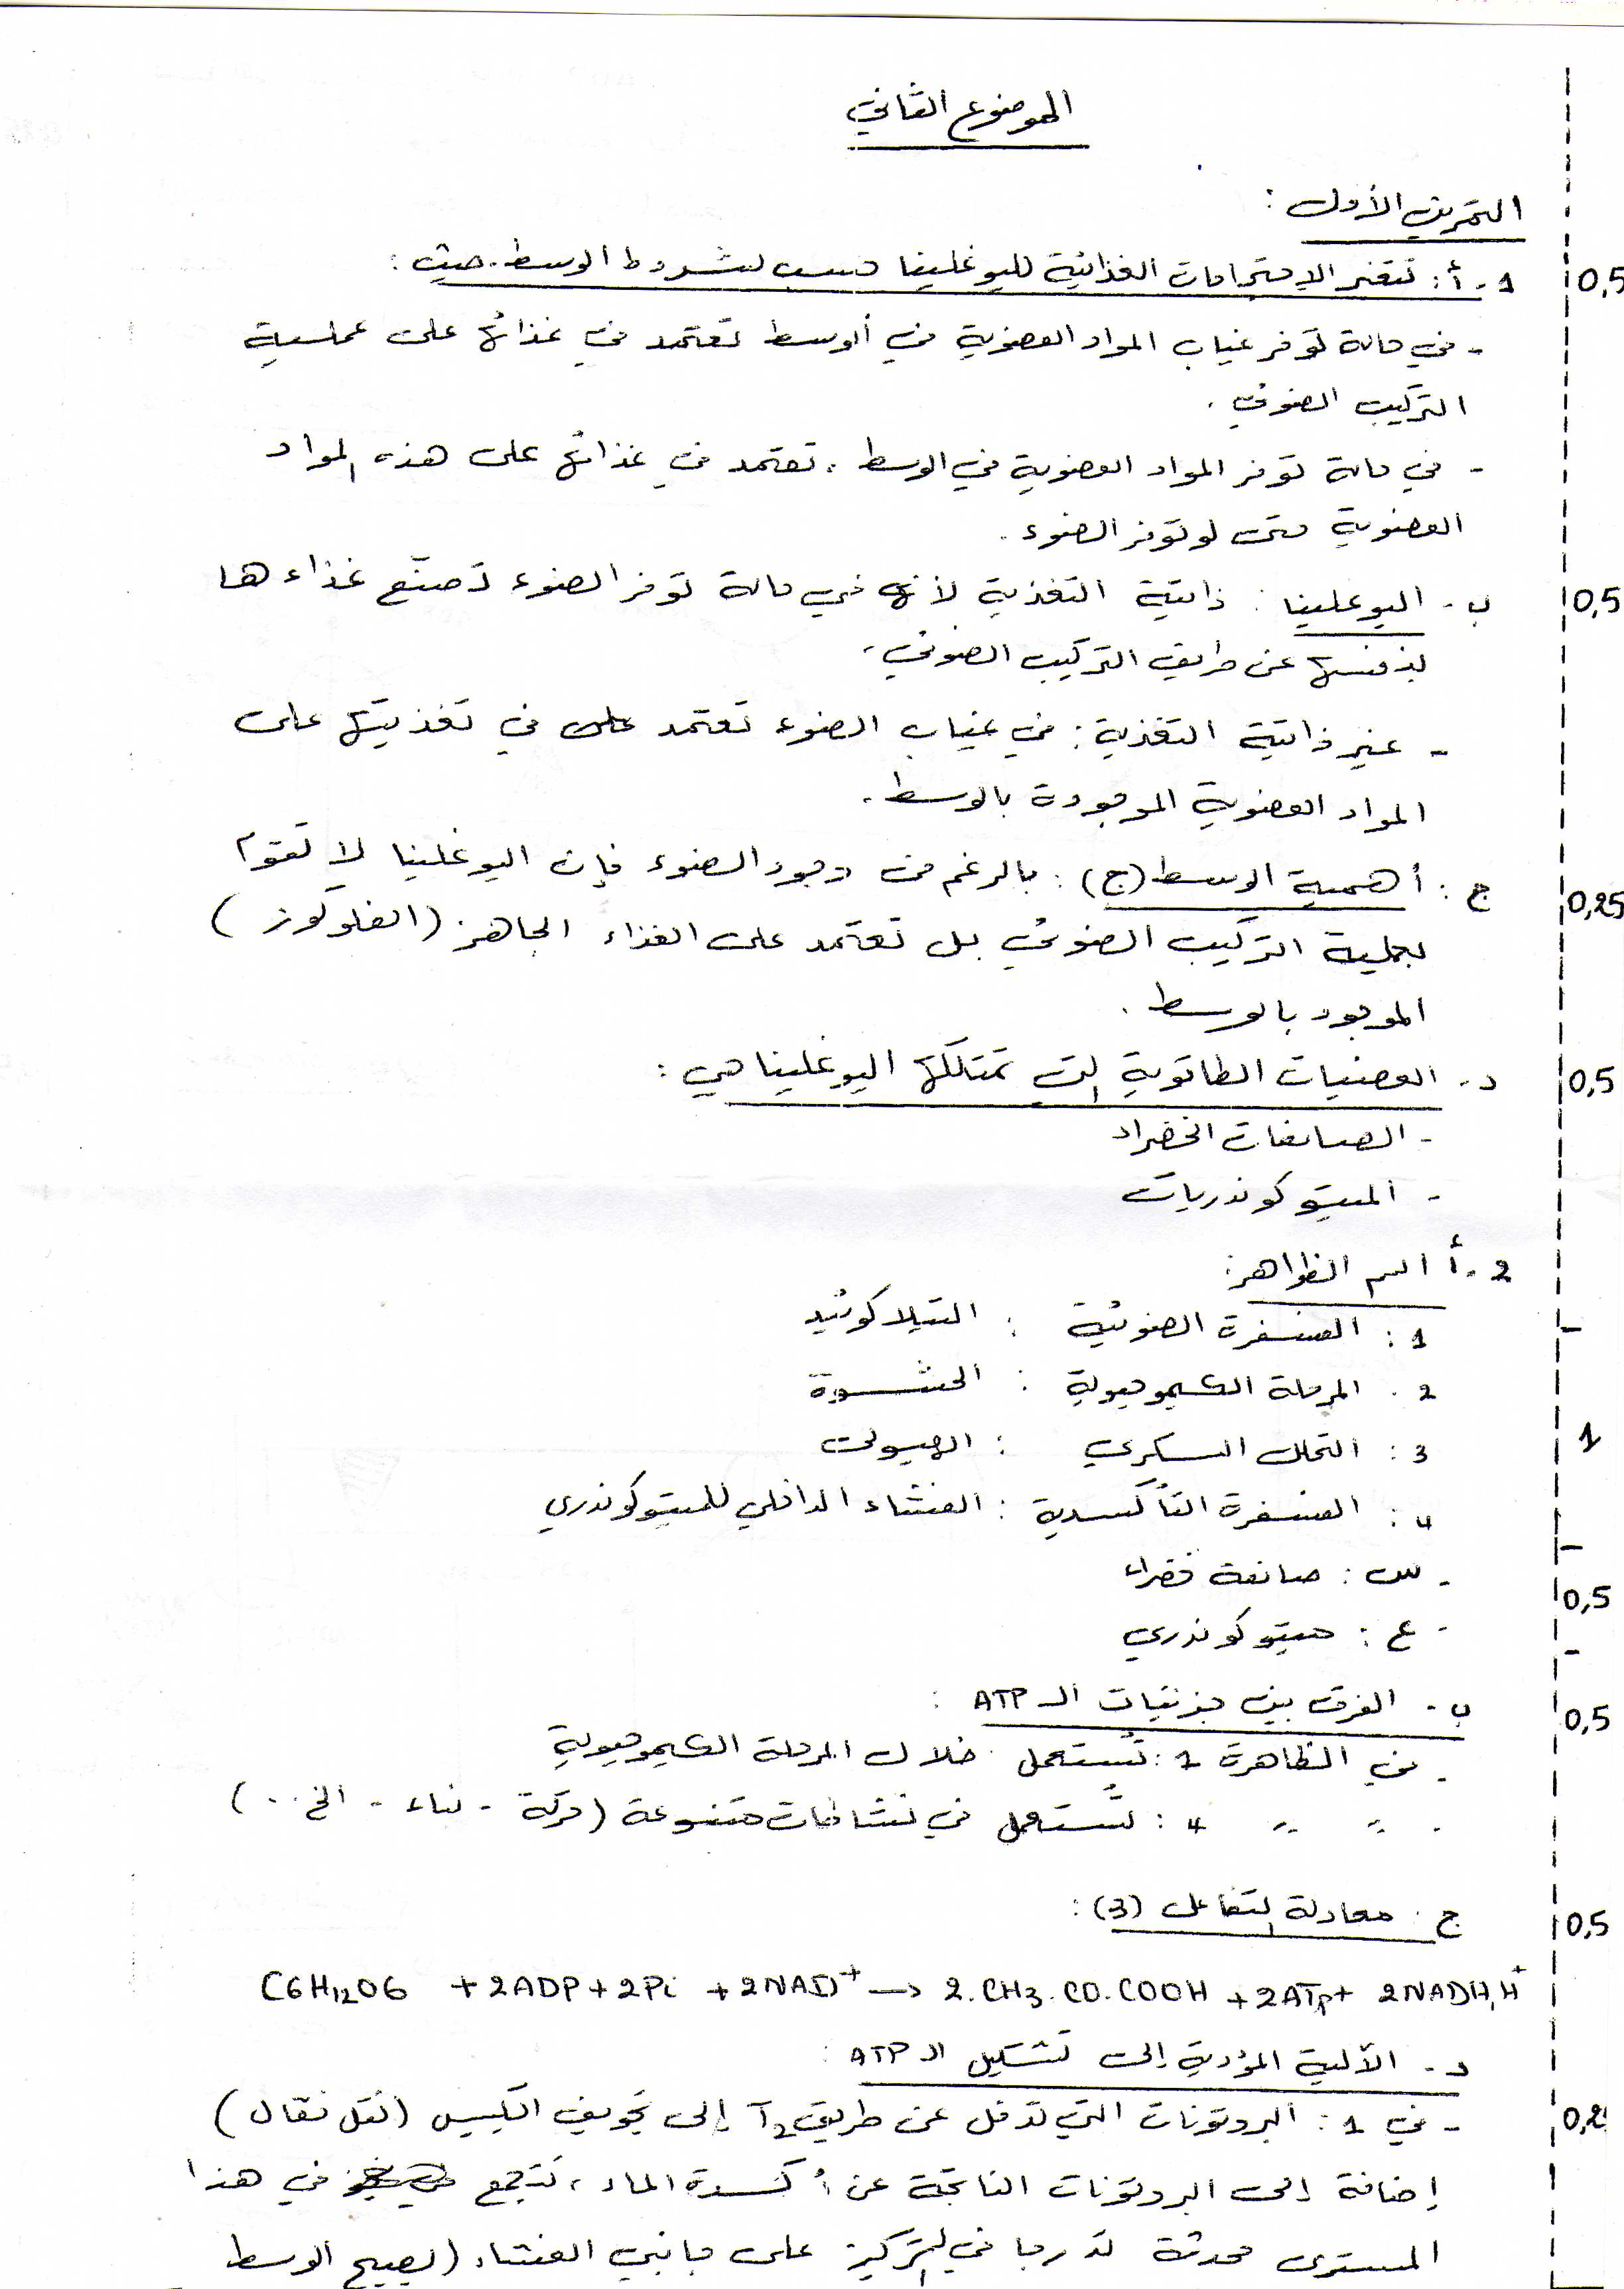 الموضوع الثاني
التمرين الأول :
1 - أ : تتغير الاحتياجات الغذائية لليوغلينا حسب لشروط الوسط . حيث : 0,5
- في حالة توفر غياب المواد العضوية في الوسط تعتمد في غذائها على عملية
التركيب الضوئي .
- في حالة توفر المواد العضوية في الوسط ، تعتمد في غذائها على هذه المواد
العضوية حتى لو توفر الضوء .
ب - اليوغلينا : ذاتية التغذية لأنها في حالة توفر الضوء تصنع غذاءها 0,5
بنفسها عن طريق التركيب الضوئي ،
- غير ذاتية التغذية : في غياب الضوء تعتمد على في تغذيتها على
المواد العضوية الموجودة بالوسط .
ج : أهمية الوسط (ج) : بالرغم من وجود الضوء فإن اليوغلينا لا تقوم 0,25
بعملية التركيب الضوئي بل تعتمد على الغذاء الجاهز (الغلوكوز)
الموجود بالوسط .
د - العضيات الطاقوية التي تمتلكها اليوغلينا هي : 0,5
- الصانعات الخضراء
- الميتوكوندريات
2 - أ اسم الظواهر :
1 : الفسفرة الضوئية : التيلاكوئيد
2 . المرحلة الكيموحيوية : الحشوة
3 : التحلل السكري : الهيولى 1
4 : الفسفرة التأكسدية : الغشاء الداخلي للميتوكوندري
- س : صانعة خضراء 0,5
- ع : ميتوكوندري
ب - الفرق بين جزيئات الـ ATP : 0,5
- في الظاهرة 1 : تستعمل خلال المرحلة الكيموحيوية
- " " 4 : تستعمل في نشاطات متنوعة (حركة - بناء - الخ ..)
ج : معادلة التفاعل (3) : 0,5
C6H12O6 + 2ADP + 2Pi + 2NAD+ → 2.CH3.CO.COOH + 2ATP + 2NADH,H+
د - الآلية المؤدية إلى تشكيل الـ ATP :
- في 1 : البروتونات التي تدخل عن طريق T2 إلى تجويف الكييس (نقل فعال) 0,2
إضافة إلى البروتونات الناتجة عن أكسدة الماء ، تتجمع في هذا
المستوى محدثة تدرجا في التركيز على جانبي الغشاء (يصبح الوسط